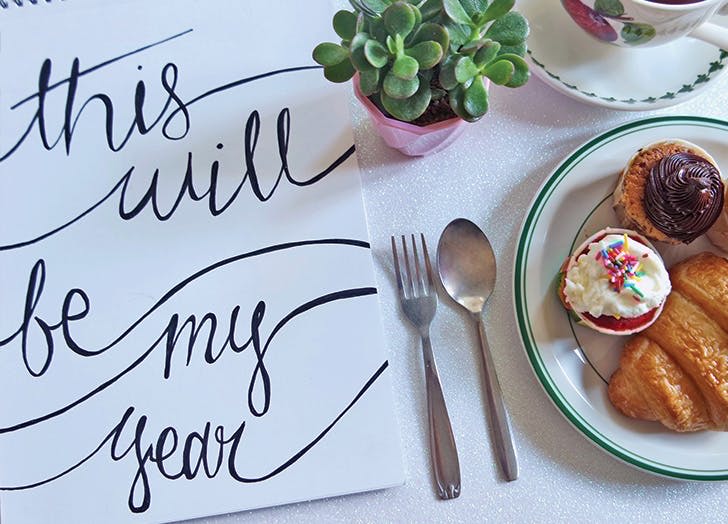 this
will
be my
year